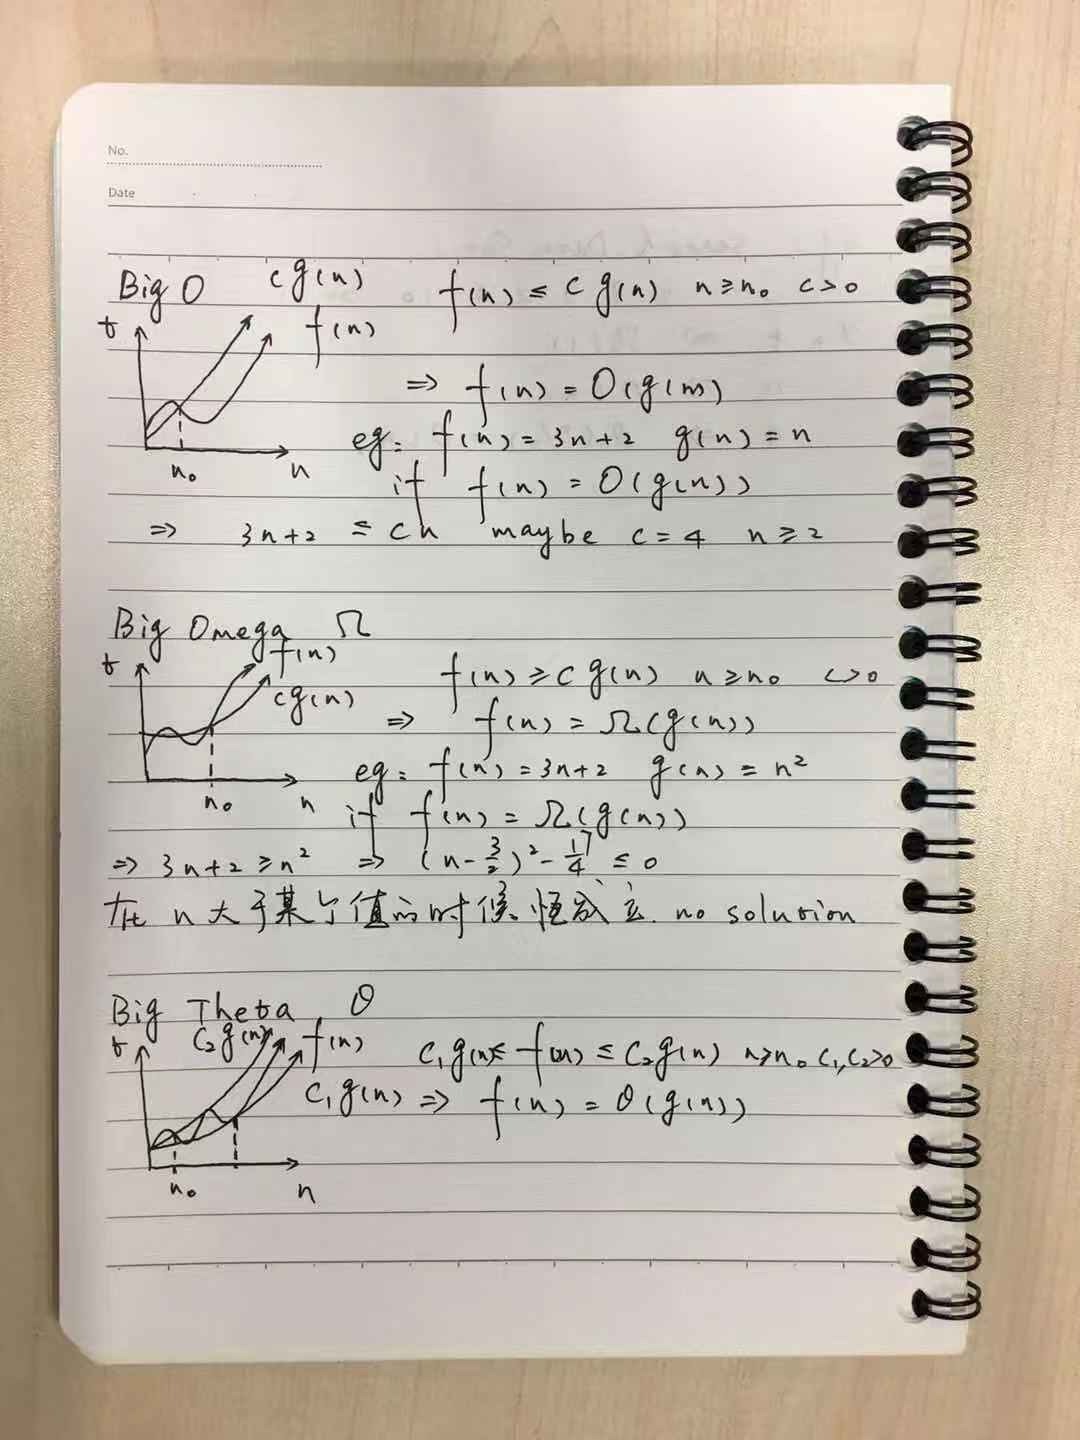 No.
Date
Big O cg(n) f(n) ≤ c g(n) n≥n₀ c>0
t f(n)
⇒ f(n) = O(g(n))
eg: f(n) = 3n+2 g(n) = n
n₀ n
if f(n) = O(g(n))
⇒ 3n+2 ≤ cn maybe c=4 n≥2
Big Omega Ω
t f(n)
cg(n) f(n) ≥ c g(n) n≥n₀ c>0
⇒ f(n) = Ω(g(n))
eg: f(n) = 3n+2 g(n) = n²
n₀ n
if f(n) = Ω(g(n))
⇒ 3n+2 ≥ n² ⇒ (n-3/2)² - 17/4 ≤ 0
在 n 大于某个值的时候 恒成立. no solution
Big Theta θ
t c₂g(n) f(n) c₁g(n) ≤ f(n) ≤ c₂g(n) n≥n₀ c₁,c₂>0
c₁g(n) ⇒ f(n) = θ(g(n))
n₀ n